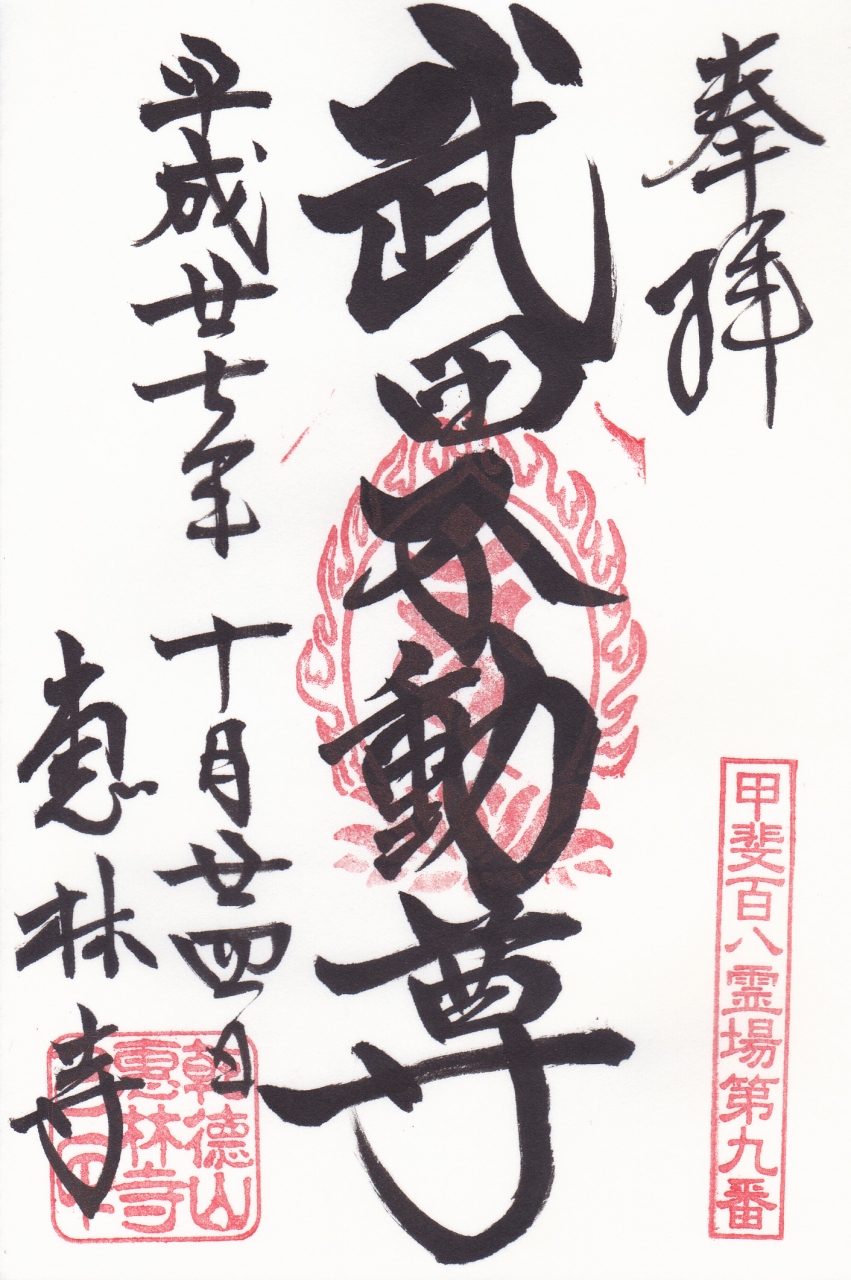 奉拝
甲斐百八霊場第九番
武田不動尊
平成廿七年 十月廿四日
恵林寺
乾徳山
恵林寺